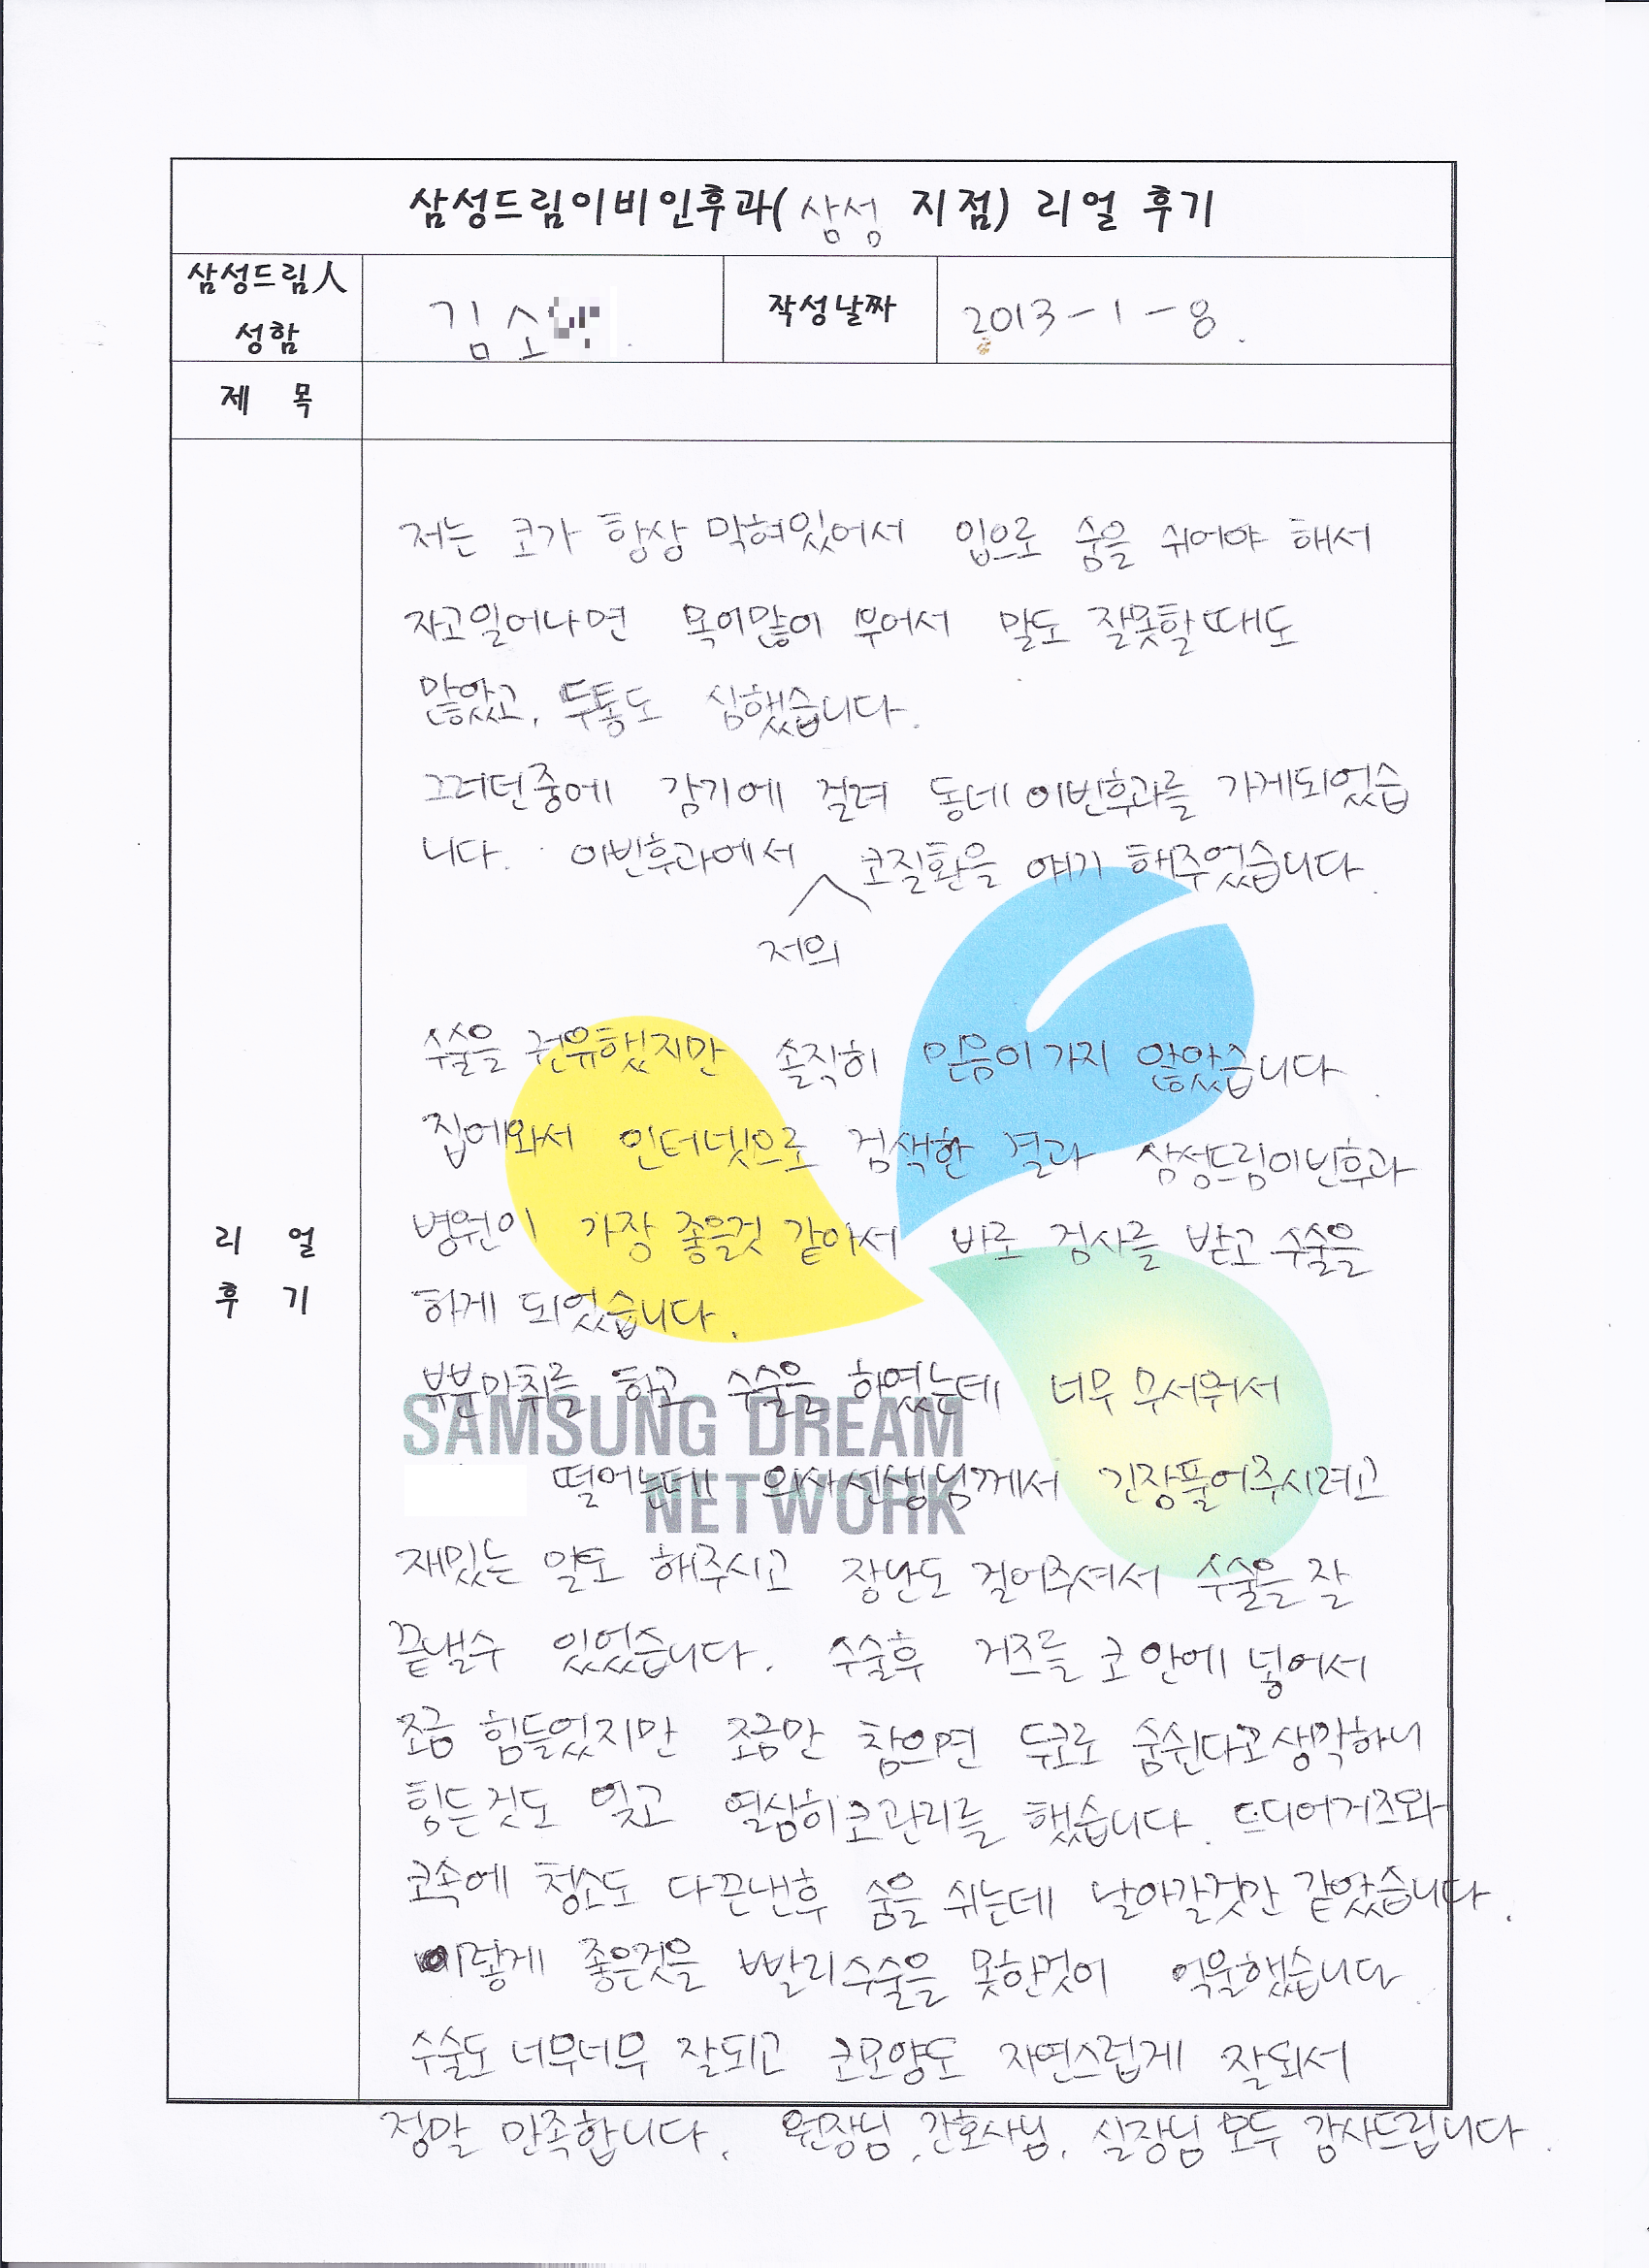 삼성드림이비인후과( 삼성 지점) 리얼 후기
삼성드림人 성함
김소
작성날짜
2013-1-8.
제 목
리 얼 후 기
저는 코가 항상 막혀있어서 입으로 숨을 쉬어야 해서
자고일어나면 목이많이 부어서 말도 잘못할때도
많았고, 두통도 심했습니다.
그러던중에 감기에 걸려 동네 이빈후과를 가게되었습
니다. 이빈후과에서 저의 코질환을 얘기 해주었습니다.
수술을 권유했지만 솔직히 믿음이가지 않았습니다.
집에와서 인터넷으로 검색한 결과 삼성드림이빈후과
병원이 가장 좋을것 같아서 바로 검사를 받고 수술을
하게 되었습니다.
부분마취를 하고 수술을 하였는데 너무 무서워서
떨었는데 의사선생님께서 긴장풀어주시려고
재밌는 말도 해주시고 장난도 걸어주셔서 수술을 잘
끝낼수 있었습니다. 수술후 거즈를 코 안에 넣어서
조금 힘들었지만 조금만 참으면 두코로 숨쉰다고생각하니
힘든것도 잊고 열심히코관리를 했습니다. 드디어거즈와
코속에 청소도 다끈낸후 숨을 쉬는데 날아갈것만 같았습니다.
이렇게 좋은것을 빨리수술을 못한것이 억울했습니다
수술도 너무너무 잘되고 코모양도 자연스럽게 잘되서
정말 만족합니다. 원장님, 간호사님, 실장님 모두 감사드립니다.
SAMSUNG DREAM
NETWORK